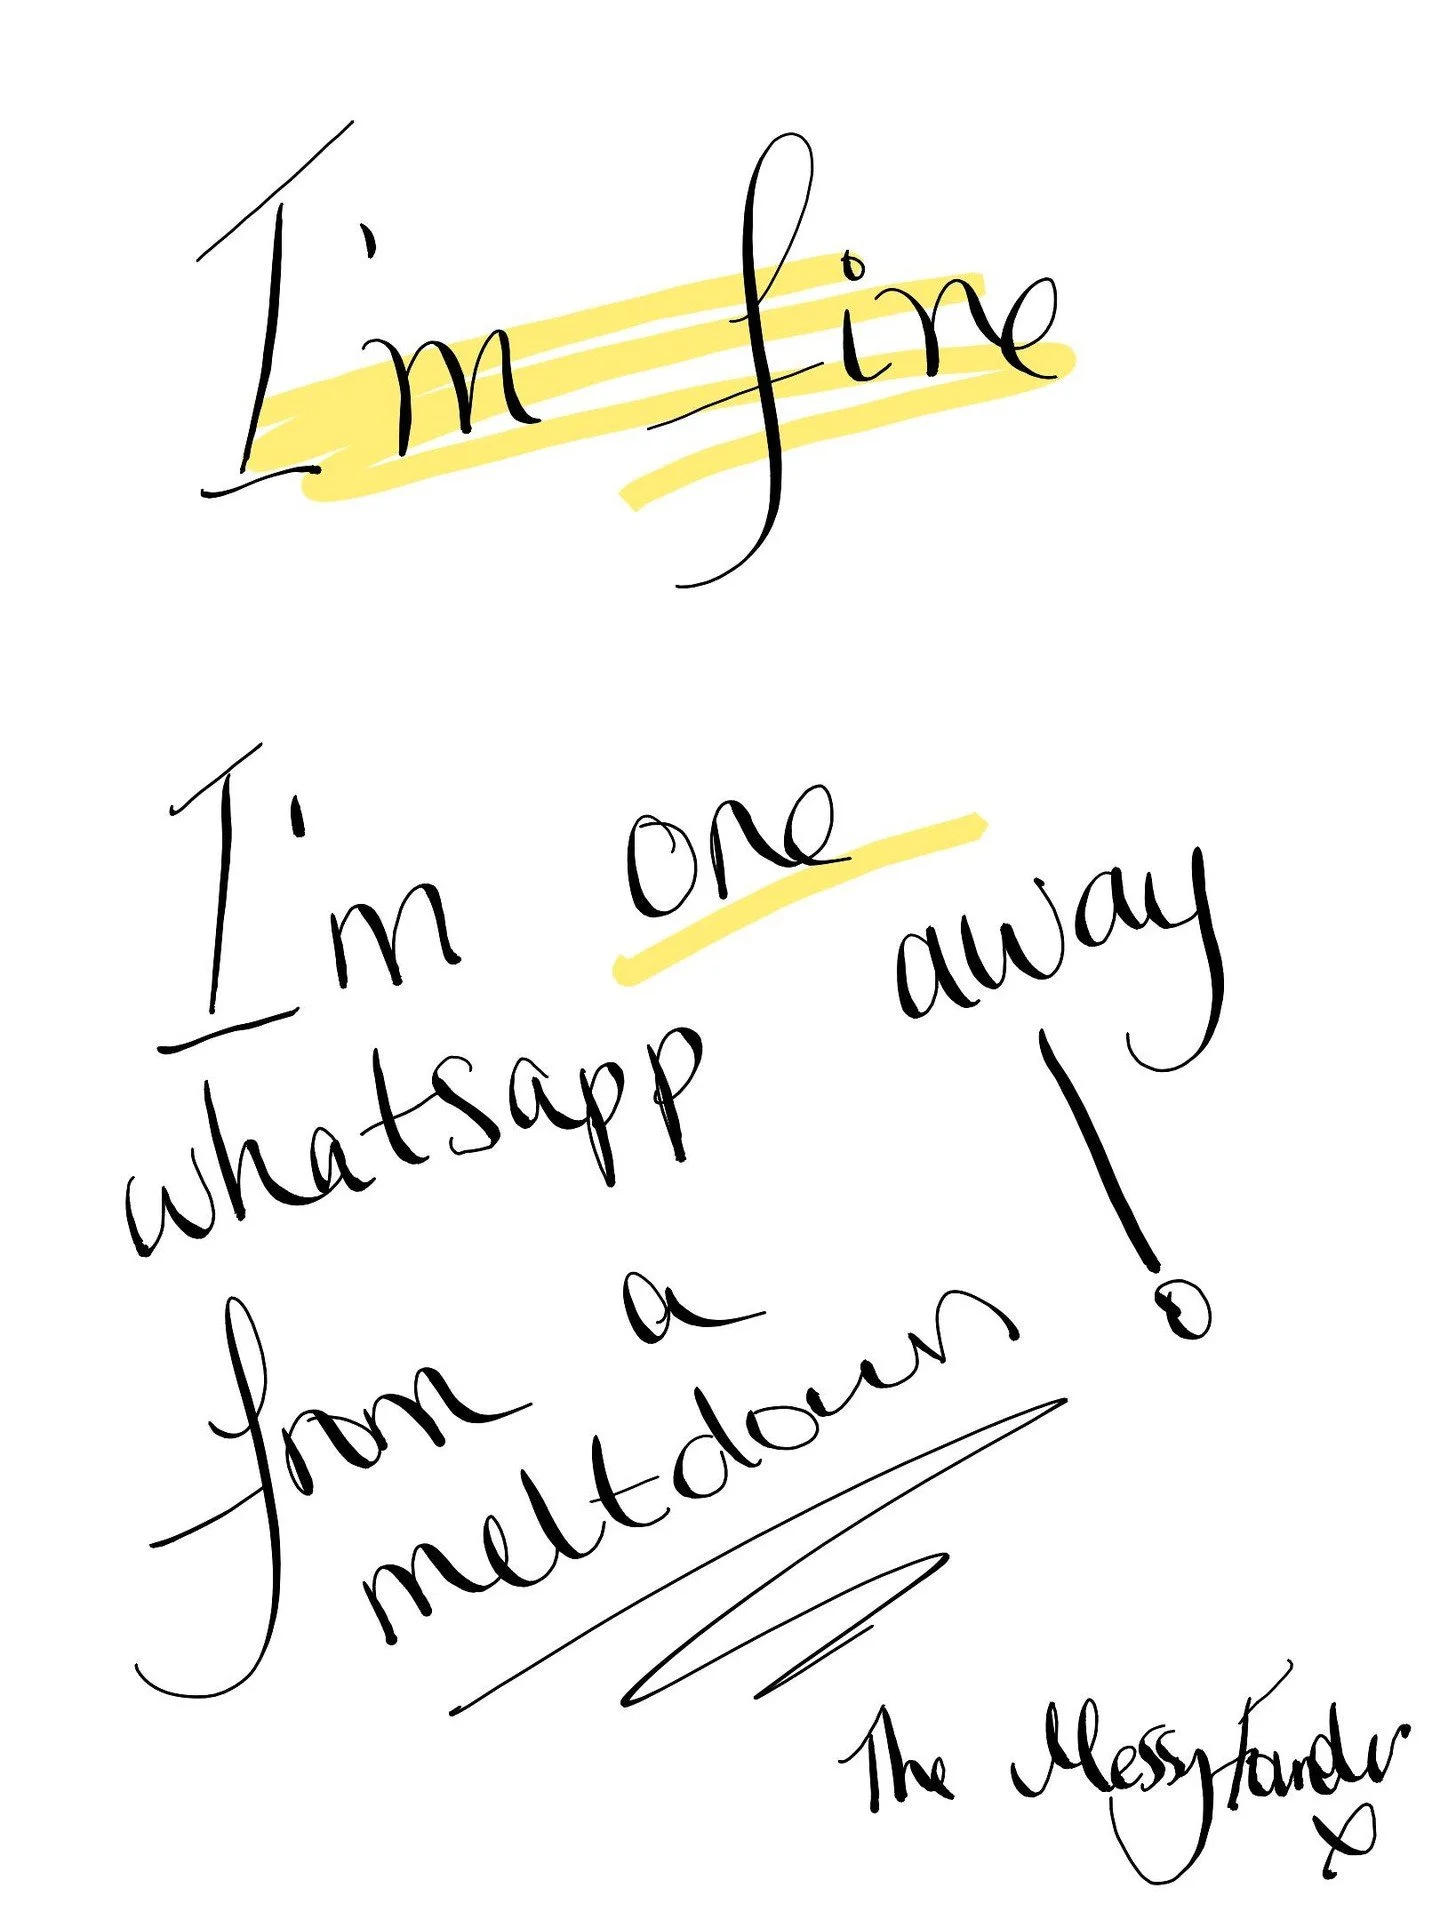 I'm fine
I'm one
away
whatsapp
from a
meltdown!
The Messy Founder
x